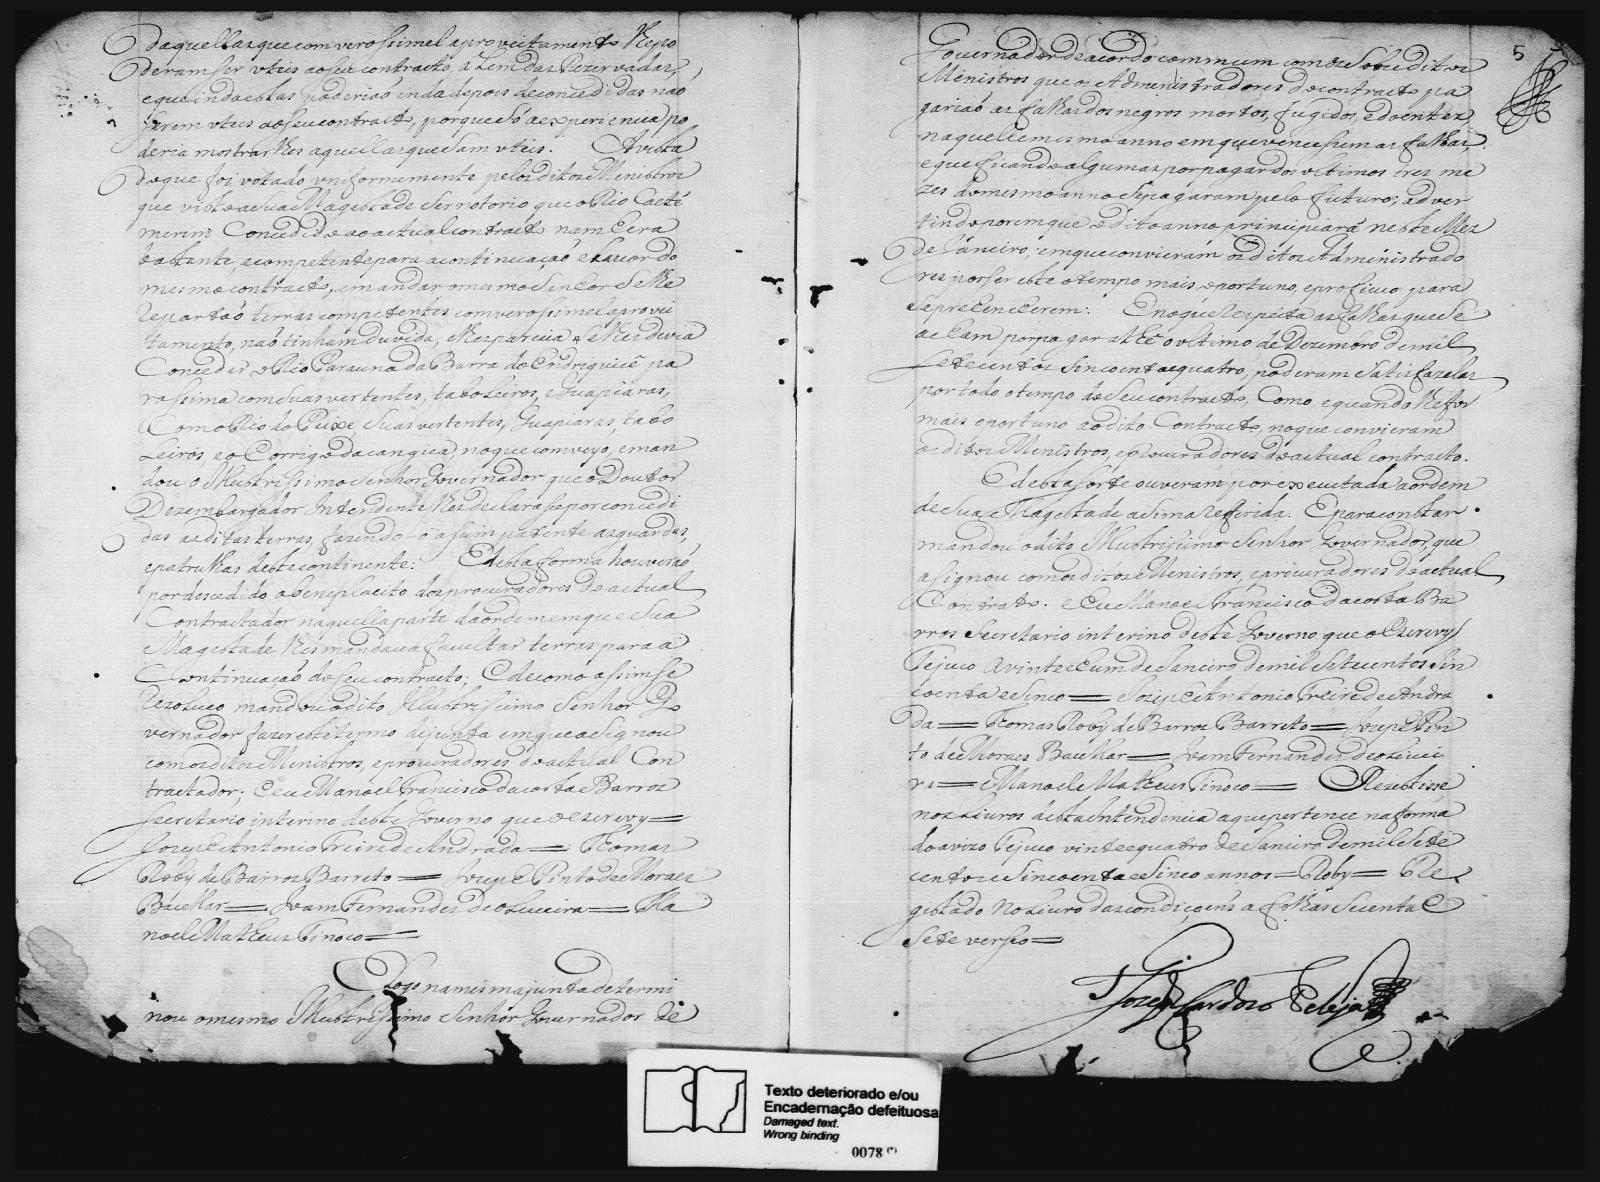 daquellas que com verossimel aproveitamento lhe po
deram ser uteis ao seu contracto, alem das rezervadas,
e que inda estas poderiaó inda depois de concedidas naó
serem uteis ao seu contracto, porque só a experiencia po
deria mostrarlhes aquellas que sam uteis. A vista
do que foi votado uniformemente pelos ditos Ministros
que visto a Sua Magestade ser notorio que o Rio Caeté
merim Concedido ao actual contracto nam hera
bastante, e competente para a continuaçaó e lavor do
mesmo contracto, e mandar o mesmo Senhor se lhe
repartaó terras competentes com verossimel aprovei
tamento, naó tinham duvida, lhes parecia se lhes devia
Conceder o Rio Parauna da Barra do Endriquicé pa
ra sima com suas vertentes, taboleiros, e Guapiaras,
Como o Rio do Peixe suas vertentes, Guapiaras, tabo
leiros, e o Corrigo da cangica, no que comveyo, e man
dou o Illustrissimo Senhor Governador que o Doutor
Dezembargador Intendente lhes declarase por concedi
das as ditas terras, fazendo-o asim patente as guardas,
e patrulhas deste continente: E desta forma houveraó
por descedido a beneplacito dos procuradores do actual
Contractador naquella parte da ordem em que Sua
Magestade lhes mandava facultar terras para a
Continuaçaó do seu contracto; E de como assim se
rezolveo mandou o dito Illustrissimo Senhor Go
vernador fazer este termo de junta em que asignou
com os ditos Ministros, e procuradores do actual Con
tractador; E eu Manoel Francisco da costa e Barros
Secretario interino deste Governo que o escrevy=
Jozeph Antonio Freire de Andrada= Thomas
Roby de Barros Barreto= Jozeph Pinto de Moraes
Bacelhar= Joam Fernandes de oLiveira= Ma
noel Matheus Tinoco=
E logo na mesma junta determi
nou o mesmo Illustrissimo Senhor Governador de
5
Governador de acordo commum com os sobreditos
Menistros que os Administradores do contracto pa
gariaó as falhas dos negros mortos, fugidos, e doentes
naquelle mismo anno em que vencessem as falhas,
e que ficando algumas por pagar dos ultimos tres me
zes do mesmo anno se pagaram pelo futuro; adver
tindo porem que o dito anno principiará neste Mez
de Janeiro; em que convieraó os ditos Administrado
res por ser este o tempo mais oportuno, e profícuo para
se prehencherem: E no que respeita as falhas que se
acham por pagar athé o ultimo de Dezembro de mil
sete centos sincoenta e quatro, poderam satisfazelas
por todo o tempo do seu contracto, Como e quando lhe for
mais oportuno ao dito Contracto, no que convieram
os ditos Ministros, e procuradores do actual contracto.
E desta sorte ouveram por executada a ordem
de Sua Magestade asima referida. E para constar
mandou o dito Illustrissimo Senhor Governador, que
asignou com os ditos Ministros, e procuradores do actual
Contrato. e Eu Manoel Francisco da costa Ba
rros Secretario interino deste Governo que o Escrevy
Tejuco a vinte e hum de Janeiro de mil setecentos sin
coenta e sinco= Jozeph Antonio Freire de Andra
da= Thomas Roby de Barros Barreto= Jozeph Pin
to de Moraes Bacelhar= Joam Fernandes de oLivei
ra= Manoel Matheus Tinoco= Rezistese
nos Livros desta Intendencia a que pertence na forma
do avizo Tejuco vinte e quatro de Janeiro de mil sete
centos e sincoenta e sinco annos= Roby= Re
gistado No Livro das condicoens a folhas secenta e
sete verso=
Jozeph Cardozo Peleja
Texto deteriorado e/ou
Encadernação defeituosa
Damaged text.
Wrong binding
0078 (*)